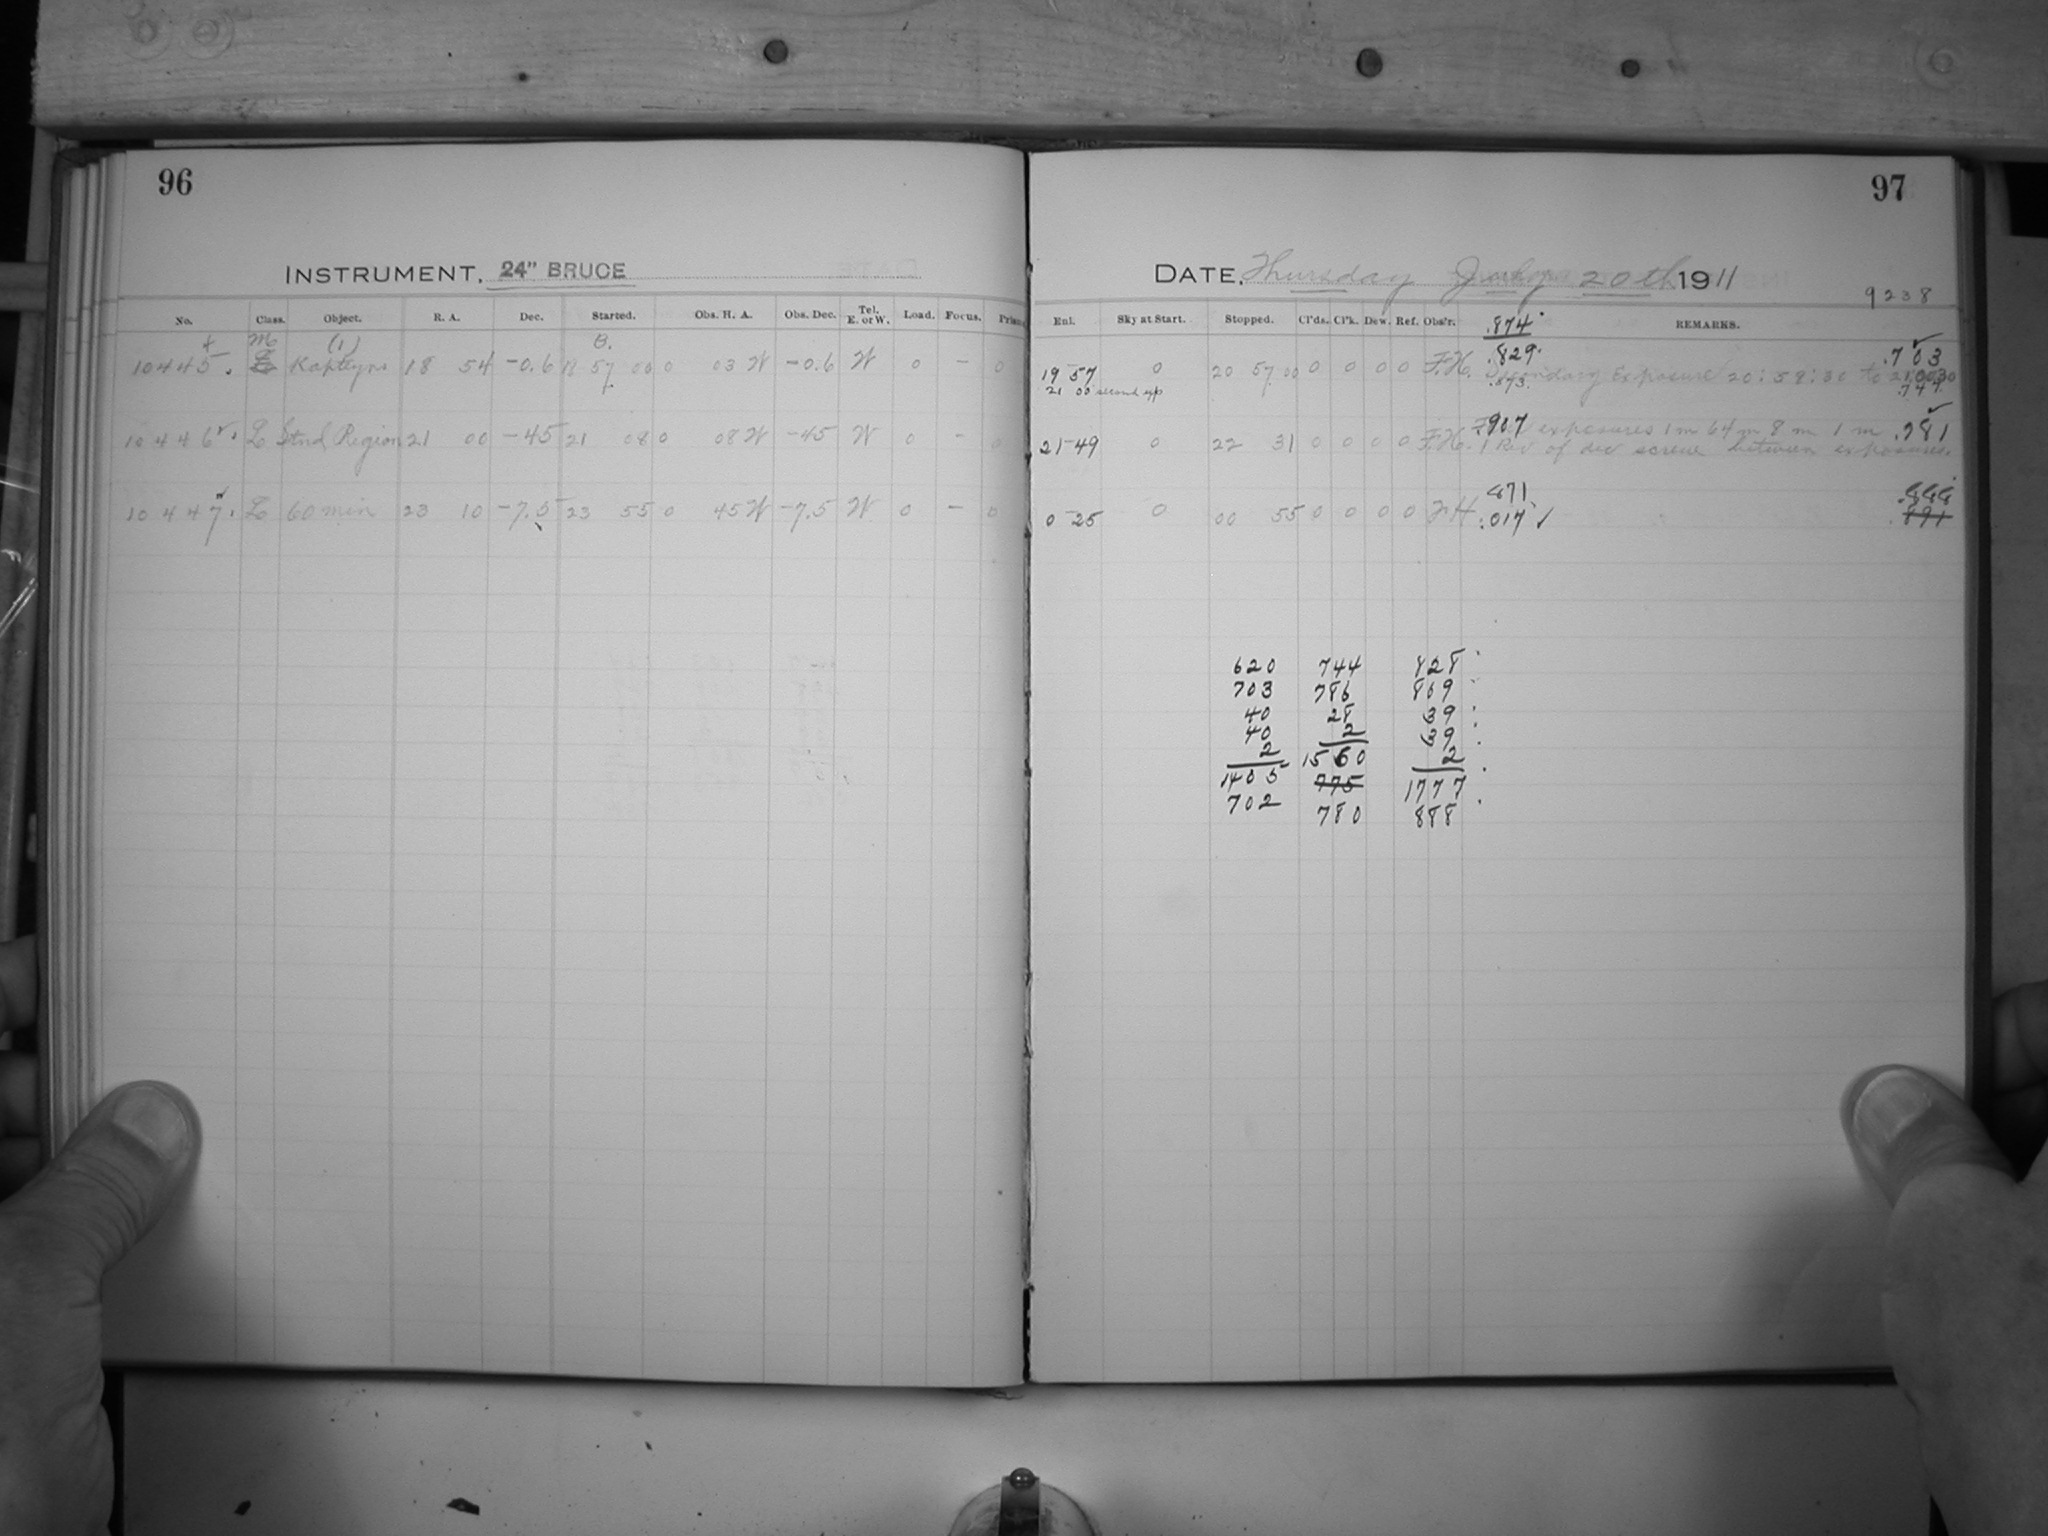 96
INSTRUMENT, 24" BRUCE
No. Class. Object. R. A. Dec. Started. Obs. H. A. Obs. Dec. Tel. E. or W. Load. Focus. Prism
M (1) B.
10445. Kapteyns 18 54 -0.6 18 57 00 0 03 W -0.6 W 0 - 0
10446. L Stnd Region 21 00 -45 21 08 0 08 W -45 W 0 - 0
10447. L 60 min 23 10 -7.5 23 55 0 45 W -7.5 W 0 - 0
97
DATE, Thursday July 20th 1911
9238
Enl. Sky at Start. Stopped. Cl'ds. Cl'k. Dew. Ref. Obs'r. .874 REMARKS.
.829 .703
19 57 0 20 57 00 0 0 0 0 F.H. Secondary Exposure 20:58:30 to 21:00:30
21 00 second exp .873 .744
.907 exposures 1m 64m 8m 1m .781
21-49 0 22 31 0 0 0 0 F.H. 1 Rev of dec screw between exposures.
.871 .888
0 25 0 00 55 0 0 0 0 F H .017 ✓ .891
620 744 828
703 786 869
40 28 39
40 2 39
2 1560 2
1405 775 1777
702 780 888